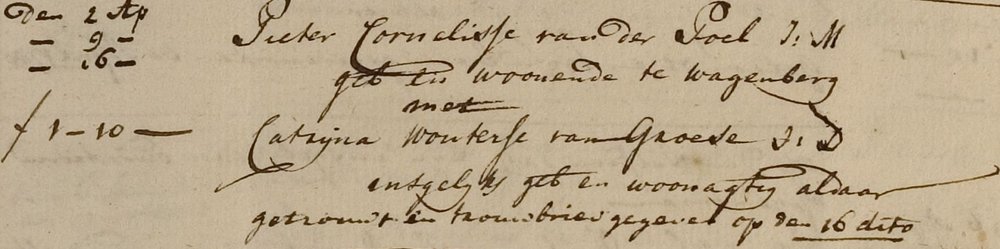 den 2 Ap
— 9 —
— 16 —
f 1 - 10 —
Pieter Cornelisse van der Poel J: M
geb en woonende te Wagenberg
met
Catrijna Wouterse van Groese J: D
insgelijks geb en woonagtig aldaar
getrouwt en trouwbrief gegeven op den 16 dito